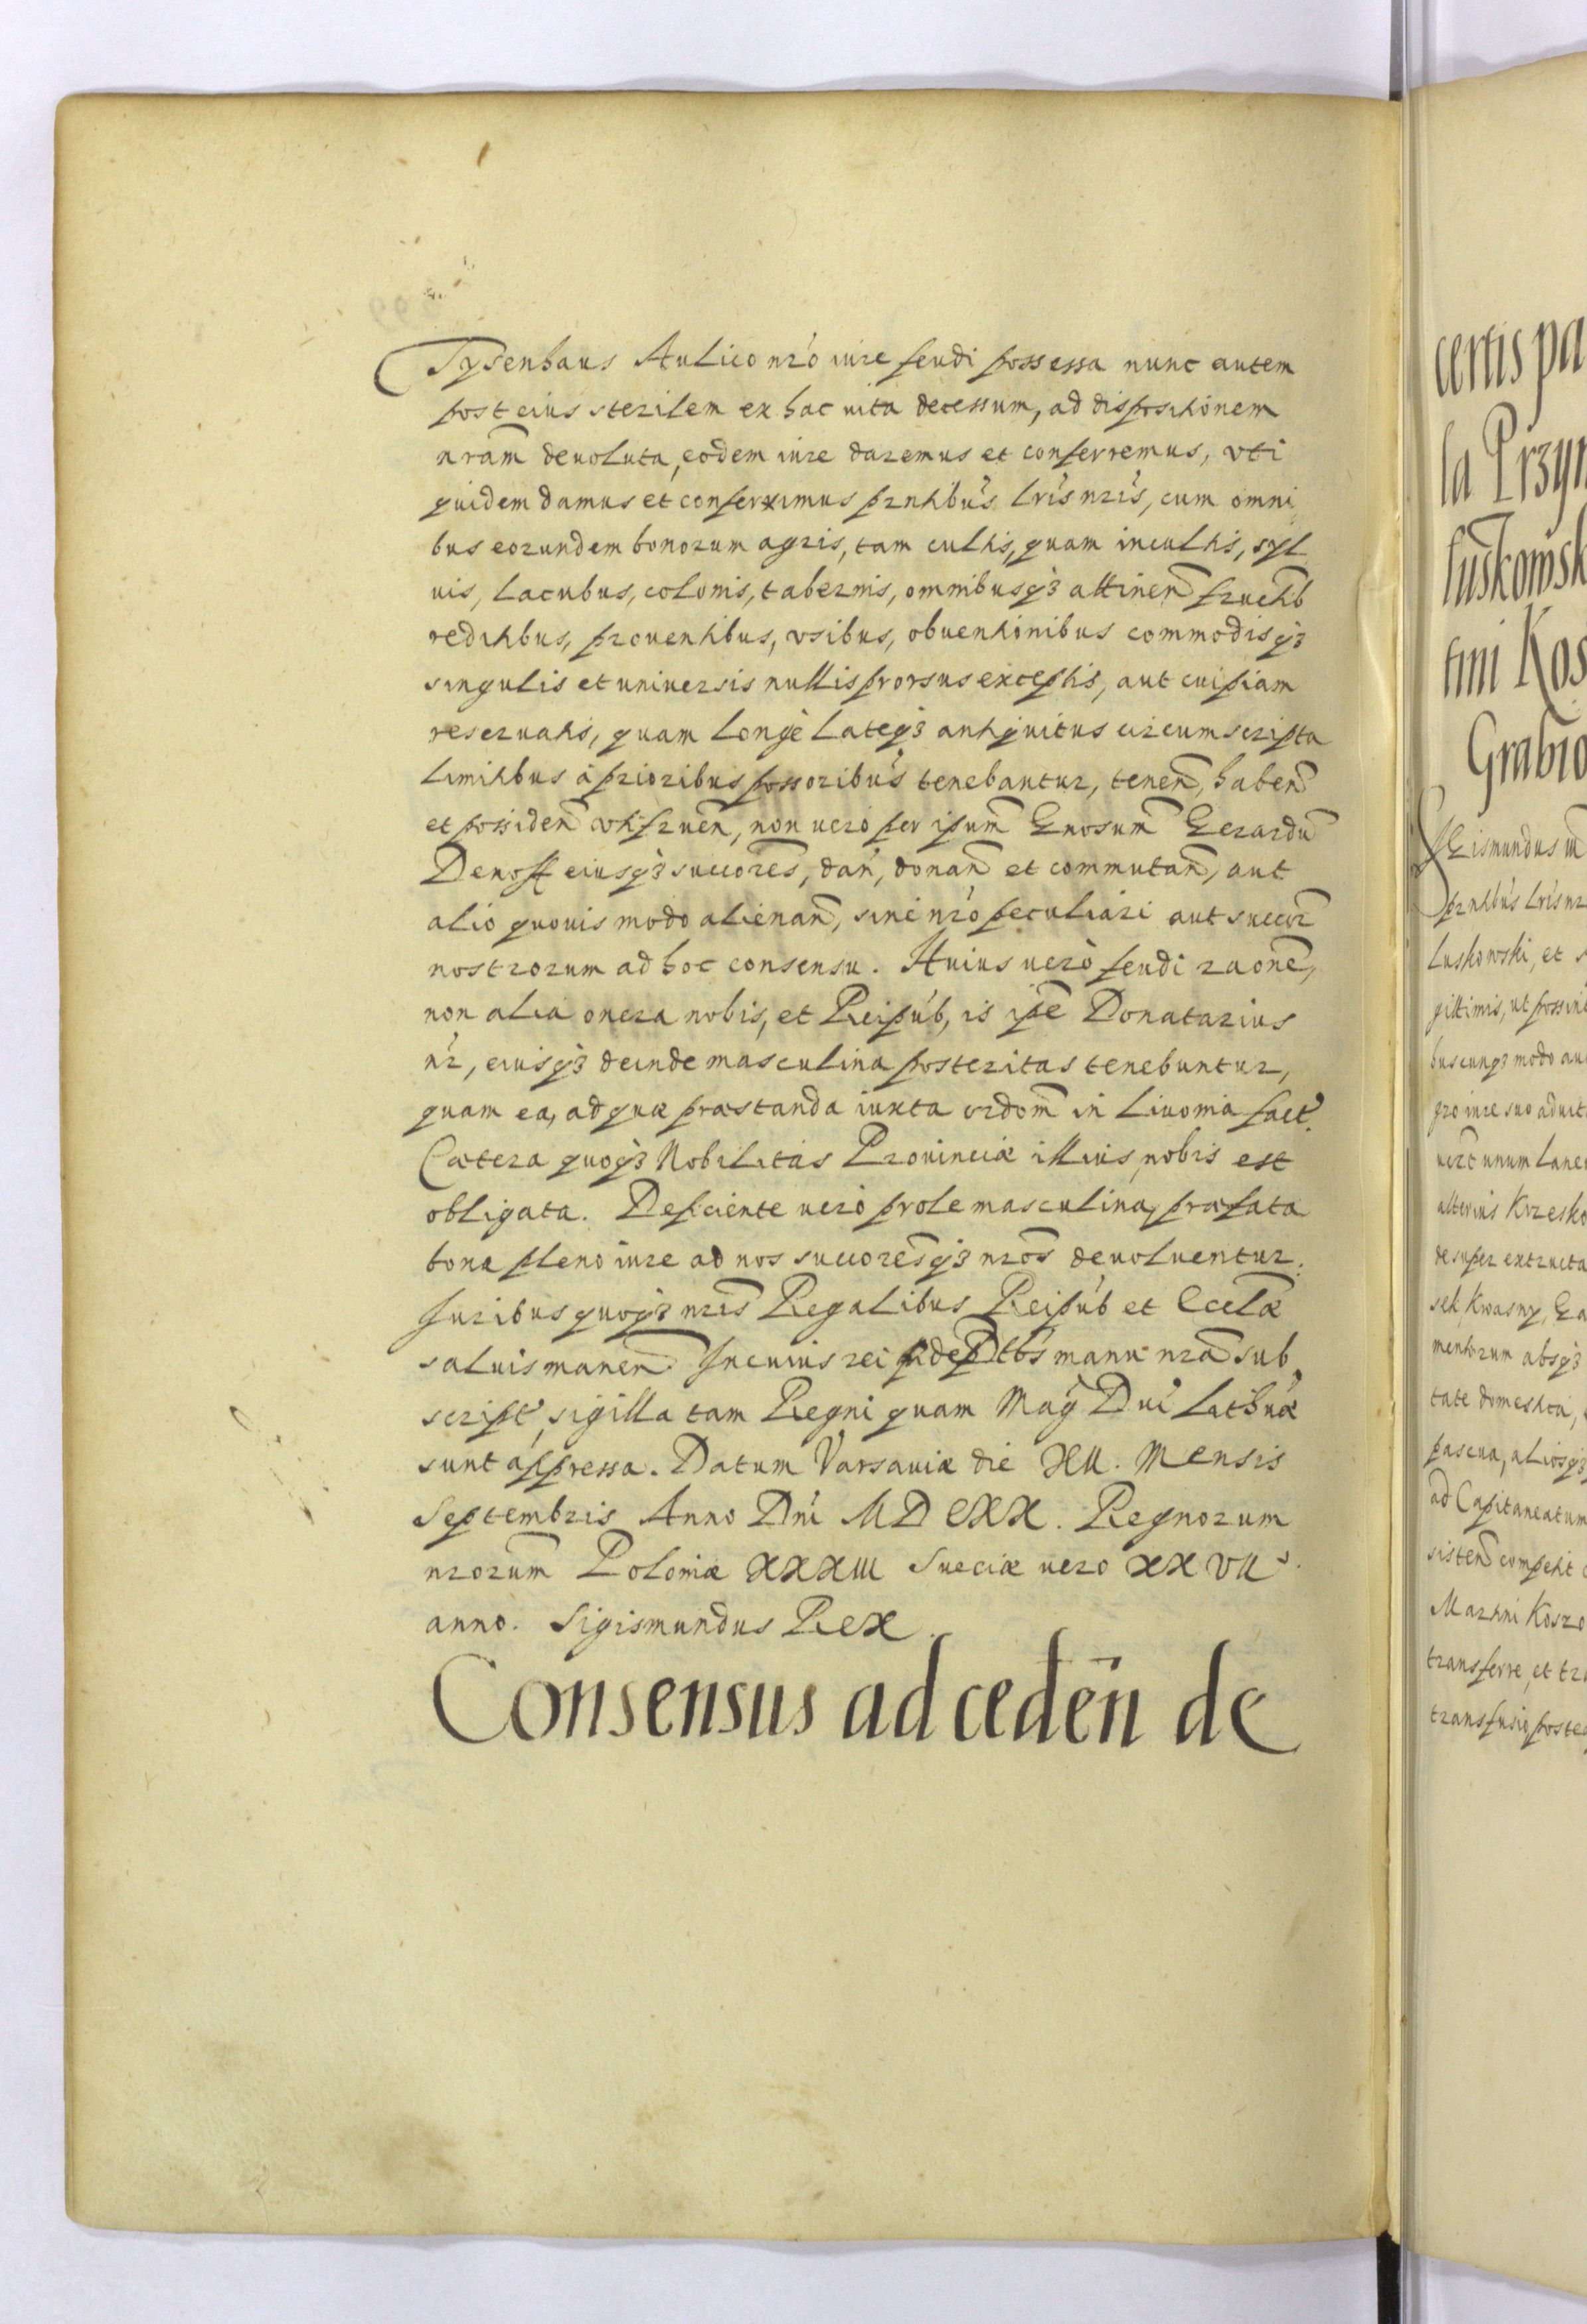 Tysenhaus Aulico nr̃o iure feudi possessa nunc autem
post eius sterilem ex hac uita decessum, ad dispositionem
nram̃ deuoluta, eodem iure daremus et conferremus, vti
quidem damus et conferimus prntibus̃ lr̃is nr̃is, cum omni
bus eorundem bonorum agris, tam cultis, quam incultis, syl
uis, lacubus, colonis, tabernis, omnibusqꝫ attineñ fructib̃
reditibus, prouentibus, vsibus, obuentionibus commodisqꝫ
singulis et uniuersis nullis prorsus exceptis, aut cuipiam
reseruatis, quam longè latèqꝫ antiquitus circumscripta
limitibus à prioribus possoribus̃ tenebantur, teneñ, habeñ
et possideñ vtifrueñ, non uero per ipsum̃ Gnosum̃ Gerardũ
Denoff eiusqꝫ succores̃, dañ, donañ et commutañ, aut
alio quouis modo alienañ, sine nr̃o peculiari aut succor̃
nostrorum ad hoc consensu. Huius uerò feudi raone͂,
non alia onera nobis, et Reipub̃, is ipse͂ Donatarius
nr̃, eiusqꝫ deinde masculina posteritas tenebuntur,
quam ea, ad quæ præstanda iuxta ordom̃ in Liuonia fact̃.
Cætera quoqꝫ Nobilitas Prouinciæ illius, nobis est
obligata. Deficiente uerò prole masculina, præfata
bona pleno iure ad nos succores̃qꝫ nros̃ deuoluentur.
Juribus quoqꝫ nris̃ Regalibus Reipub̃ et Eccl̃æ
saluis maneñ. In cuius rei fidẽ Ptbs̃ manu nrã sub
script̃, sigilla tam Regni quam Mag̃ Dũi Lithũæ
sunt appressa. Datum Varsauiæ die XII. Mensis
Septembris Anno Dñi MDCXX. Regnorum
nrorum̃ Poloniæ XXXIII Sueciæ uero XXVII
anno. Sigismundus Rex.
Consensus ad cedeñ de
certis pa
la Przyn
luskowsk
tini Kos
Grabio
Sigismundus III
prntibus̃ lr̃is nr
Luskowski, et s
gittimis, ut possint
buscunqꝫ modo au
pro iure suo aduit
unum lane
alterius Krzesko
desuper extructa
sek, Kwasny, Ga
mentorum absqꝫ
tate domestica,
pascua, aliosqꝫ
ad Capitaneatum
sisteñ competit
Martini Koszo
transferre, et tr
transfusis poste